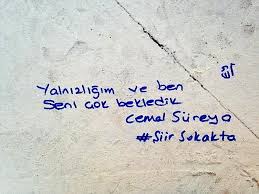 Yalnızlığım ve ben
Seni çok bekledik
Cemal Süreya
#Şiir Sokakta